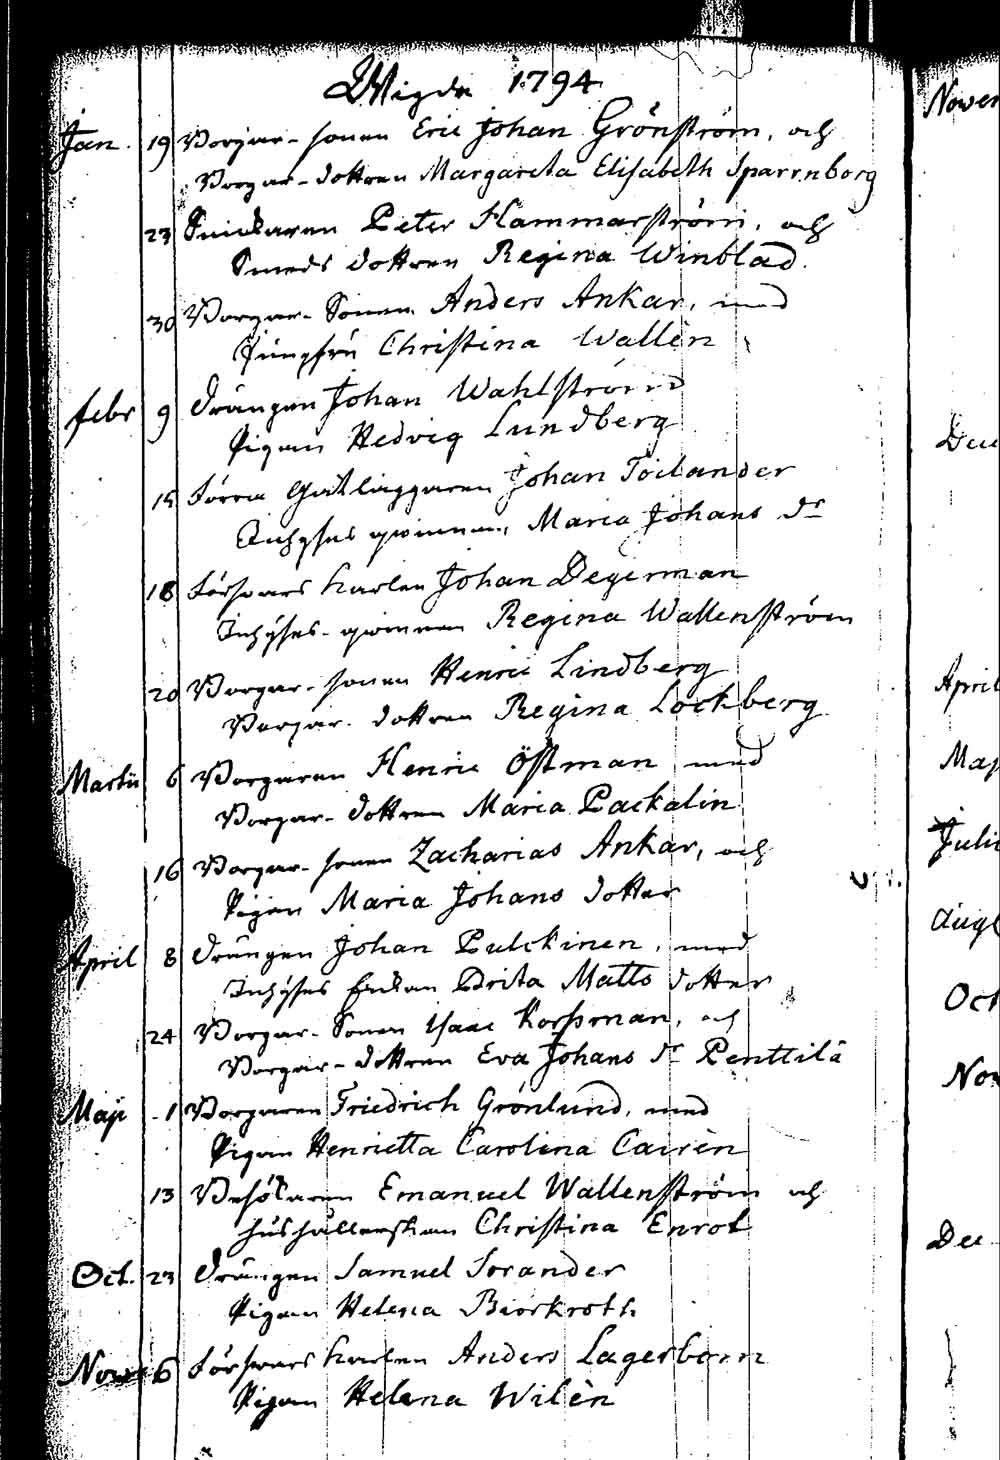 Wigde 1794
Jan. 19 Borgar-sonen Eric Johan Grönström, och
Borgar-dottren Margareta Elisabeth Sparrnborg
23 Snickaren Peter Hammarström, och
Smeds dottren Regina Winblad.
30 Borgar-Sonen Anders Ankar, med
Jungfru Christina Wallèn
Febr 9 Drängen Johan Wahlström
Pigan Hedvig Lundberg
15 Johan Toilander
Inhyses qwinnan, Maria Johans dr
18 Försvars karlen Johan Degerman
Inhyses-qwinnan Regina Wallenström
20 Borgar-sonen Henric Lindberg
Borgar-dottren Regina Lockberg
Martii 6 Borgaren Henric Östman med
Borgar-dottren Maria Packalin
16 Borgar-sonen Zacharias Ankar, och
Pigan Maria Johans dotter
April 8 Drängen Johan Pulckinen, med
Inhyses Enkan Brita Matts dotter
24 Borgar-Sonen Isaac Korsman, och
Borgar-dottren Eva Johans dr Penttilä
Maji 1 Borgaren Friedrich Grönlund, med
Pigan Henrietta Carolina Cairèn
13 Besökaren Emanuel Wallenström och
hushållerskan Christina Enrot
Oct. 23 Drängen Samuel Sorander
Pigan Helena Biorkroth
Nov 6 Försvars karlen Anders Lagerborn
Pigan Helena Wilèn
Nover
April
Maj
Julii
Aug
Oct
Nov
Dec